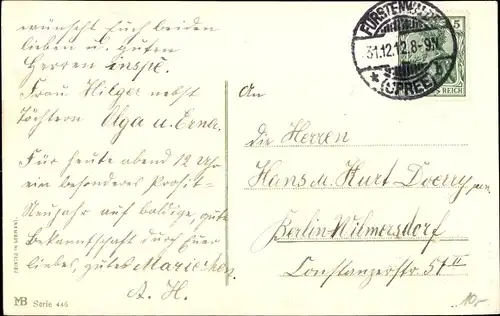 wünscht Euch beiden
lieben u. guten
Herren inspe.
Frau Hilger nebst
Töchtern Olga u. Erna.
Für heute abend 12 Uhr
ein besonderes Prosit-
Neujahr auf baldige, gute
Bekanntschaft durch Euer
liebes, gutes Mariechen
A. H.
An
die Herren
Hans u. Kurt Doerry
Berlin-Wilmersdorf
Constanzerstr 57 II
FÜRSTENWALDE
31.12.12.8-9N.
* (SPREE)
5
REICH
PRINTED IN GERMANY
MB Serie 446
10,-